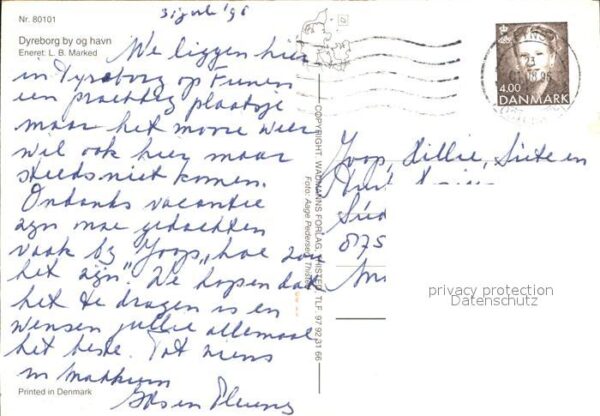 Nr. 80101
Dyreborg by og havn
Eneret: L. B. Marked
31 juli '96
We liggen hier
in Dyreborg op Funen
een prachtig plaatsje
maar het mooie weer
wil ook hier maar
steeds niet komen.
Ondanks vacantie
zijn mae gedachten
vaak bij Joop, "hoe zou
het zijn". We hopen dat
het te dragen is en
wensen jullie allemaal
het beste. Tot ziens
in Makkum
en
Printed in Denmark
COPYRIGHT: WADMANNS FORLAG, THISTED, TLF. 97 92 31 66
Foto: Aage Pedersen, Thisted
4.00
DANMARK
Joop, Lillie, Siete en
8175
privacy protection
Datenschutz